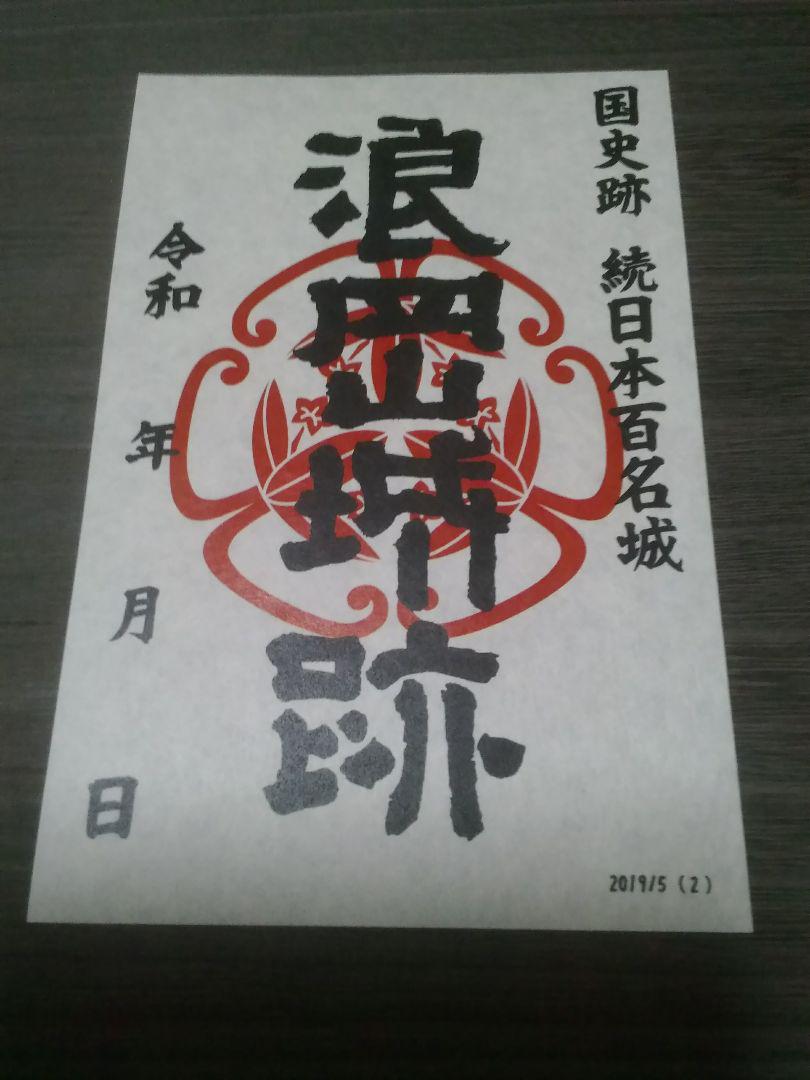 国史跡 続日本百名城
浪岡城跡
令和 年 月 日
2019/5 (2)